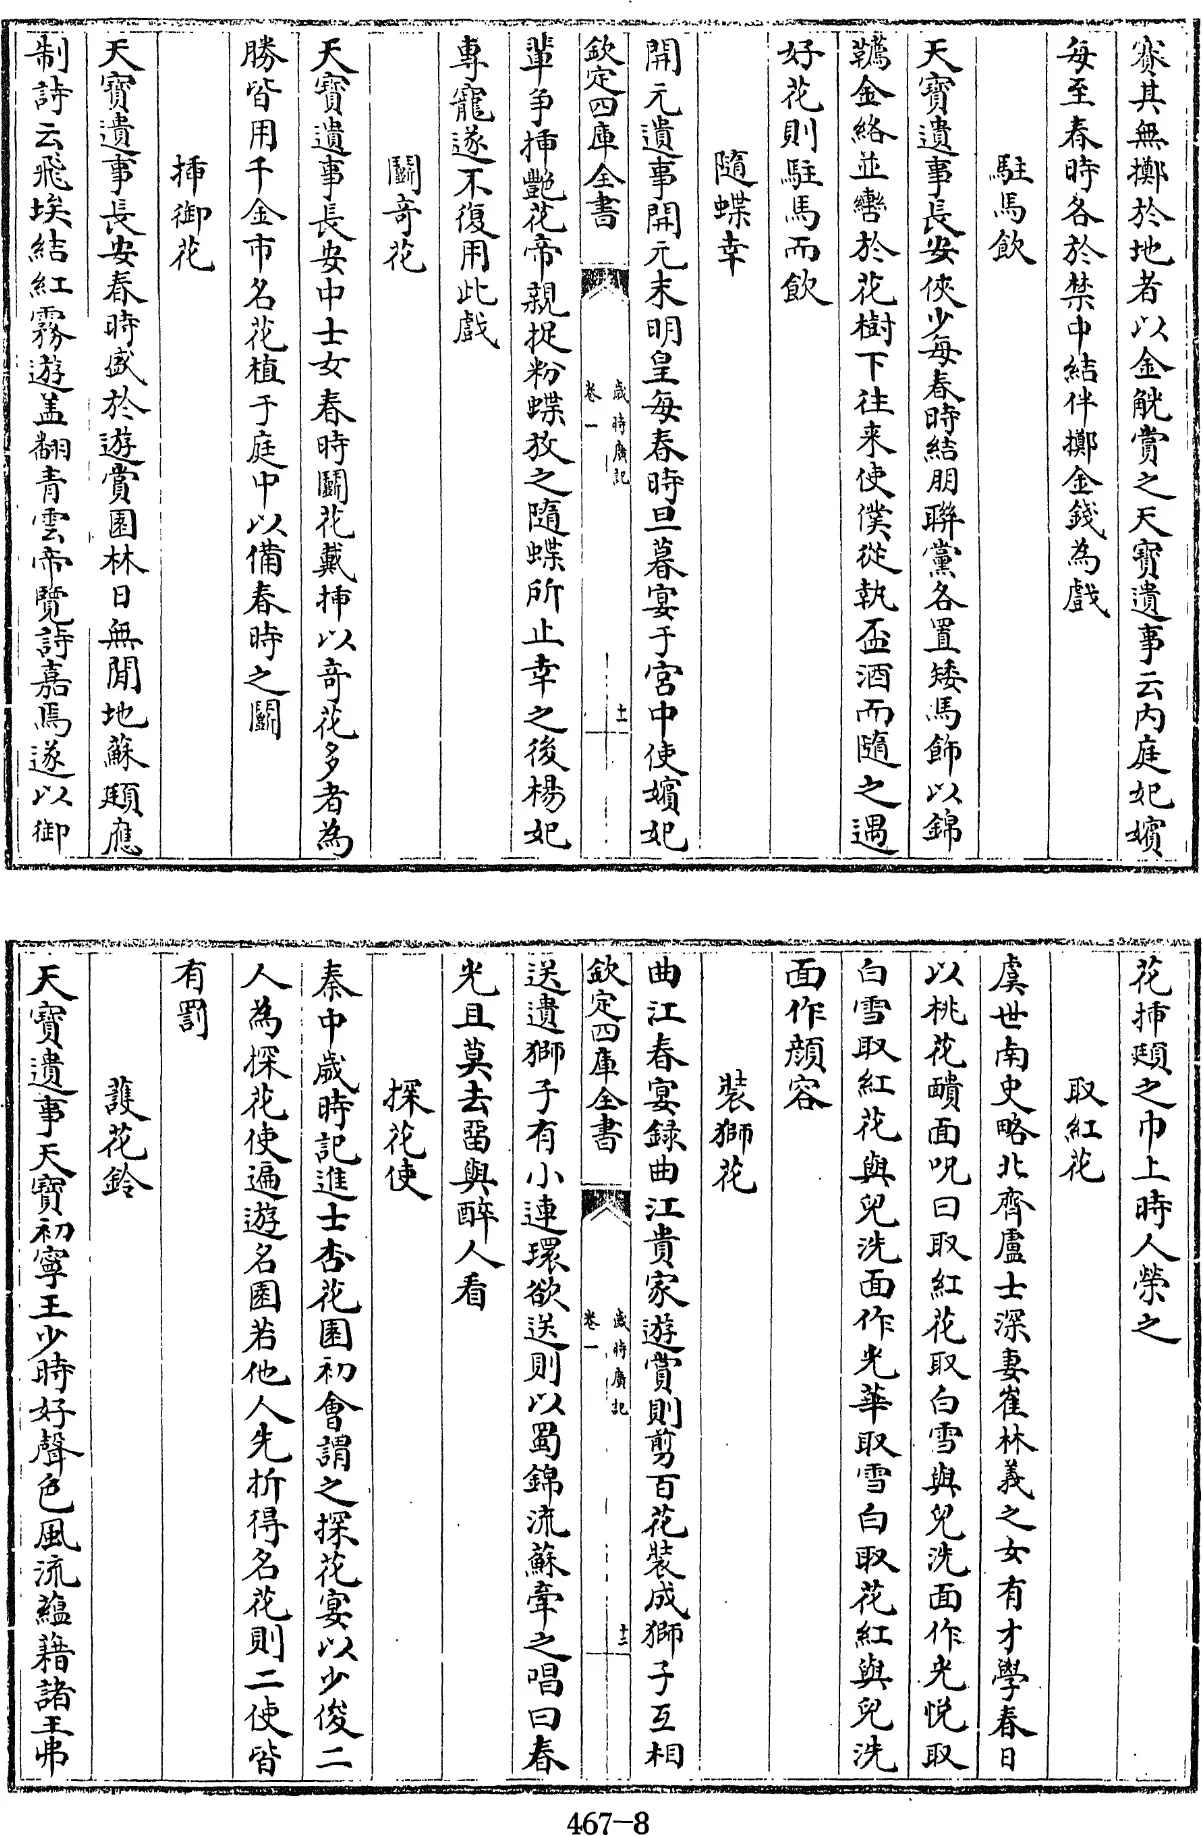 賽其無擲於地者以金觥賞之天寶遺事云内庭妃嬪
每至春時各於禁中結伴擲金錢為戲
駐馬飲
天寶遺事長安俠少每春時結朋聯黨各置矮馬飾以錦
韉金絡並轡於花樹下往来使僕從執盃酒而隨之遇
好花則駐馬而飲
隨蝶幸
開元遺事開元末明皇每春時旦暮宴于宫中使嬪妃
欽定四庫全書
歲時廣記
卷一
十一
輩争挿艷花帝親捉粉蝶放之隨蝶所止幸之後楊妃
專寵遂不復用此戲
鬬奇花
天寶遺事長安中士女春時鬬花戴挿以奇花多者為
勝皆用千金市名花植于庭中以備春時之鬬
挿御花
天寶遺事長安春時盛於遊賞園林日無閒地蘇頲應
制詩云飛埃結紅霧遊盖翻青雲帝覽詩嘉焉遂以御
花挿頲之巾上時人榮之
取紅花
虞世南史略北齊盧士深妻崔林義之女有才學春日
以桃花靧面呪曰取紅花取白雪與兒洗面作光悦取
白雪取紅花與兒洗面作光華取雪白取花紅與兒洗
面作顔容
裝獅花
曲江春宴録曲江貴家遊賞則剪百花裝成獅子互相
欽定四庫全書
歲時廣記
卷一
十二
送遺獅子有小連環欲送則以蜀錦流蘇牽之唱曰春
光且莫去留與醉人看
探花使
秦中歲時記進士杏花園初會謂之探花宴以少俊二
人為探花使遍遊名園若他人先折得名花則二使皆
有罰
護花鈴
天寶遺事天寶初寧王少時好聲色風流藴藉諸王弗
467-8